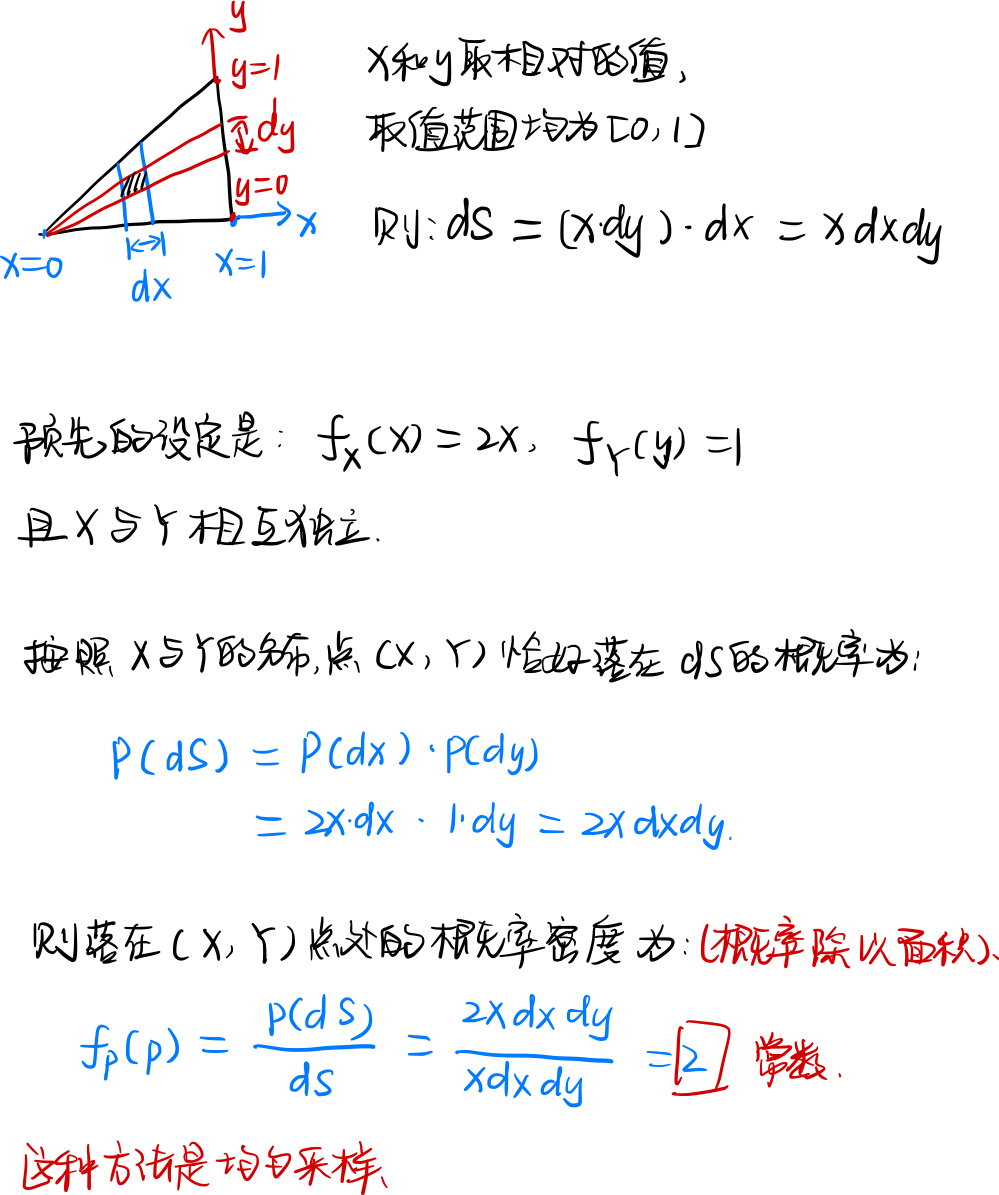 y
y=1
x和y取相对的值,
dy
取值范围均为[0,1]
y=0
x
则: dS = (x·dy)·dx = xdxdy
x=0
x=1
dx
预先的设定是: f_X(x) = 2x, f_Y(y) = 1
且X与Y相互独立.
按照X与Y的分布,点(X,Y)恰好落在dS的概率为:
P(dS) = P(dx)·P(dy)
= 2x·dx · 1·dy = 2xdxdy.
则落在(X,Y)点处的概率密度为: (概率除以面积)、
f_P(p) = P(dS)/dS = 2xdxdy/xdxdy = 2 常数.
这种方法是均匀采样、